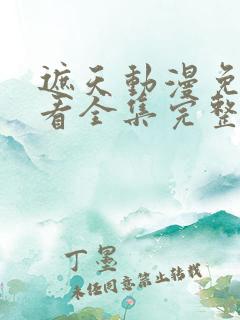 遮天動漫免
看全集完整
丁墨
未经同意禁止转载